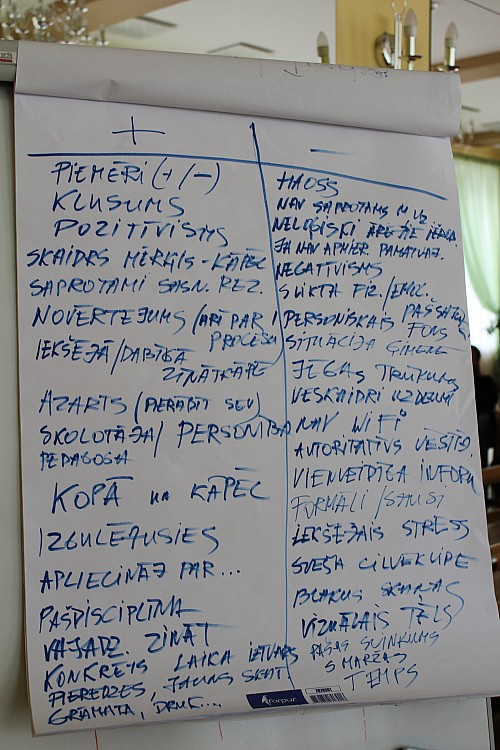 +
PIEMĒRI (+/-)
KLUSUMS
POZITĪVISMS
SKAIDRS MĒRĶIS - KĀPĒC
SAPROTAMI SASN. REZ.
NOVĒRTĒJUMS (ARĪ PAR
PROCESU
IEKŠĒJĀ/DABĪGĀ
ZINĀTKĀRE
AZARTS (PIERĀDĪT SEV)
SKOLOTĀJA/ PERSONĪBA
PEDAGOGA
KOPĀ KĀPĒC
IZGULĒJUSIES
APLIECINĀJ PAR...
PAŠDISCIPLĪNA
VAJADZ. ZINĀT
KONKRĒTS LAIKA IETVARS
PIEREDZES, JAUNS SKAT
GRĀMATA,
-
HAOSS
NAV SAPROTAMS
NELOĢISKI
JA NAV PAMATOJ.
NEGATĪVISMS
SLIKTA FIZ./EMOC.
PERSONISKAIS PAŠSAJŪTA
FONS
SITUĀCIJA ĢIMENĒ
JĒGAS TRŪKUMS
NESKAIDRI UZDEVUMI
NAV WIFI
AUTORITATĪVS
VIENVEIDĪGA INFORM
FORMĀLI/SAUSI
IEKŠĒJAIS STRESS
SVEŠA CILVĒKI
BLAKUS SKAŅAS
VIZUĀLAIS TĒLS
PAŠAS
SMARŽAS
TEMPS
forpus